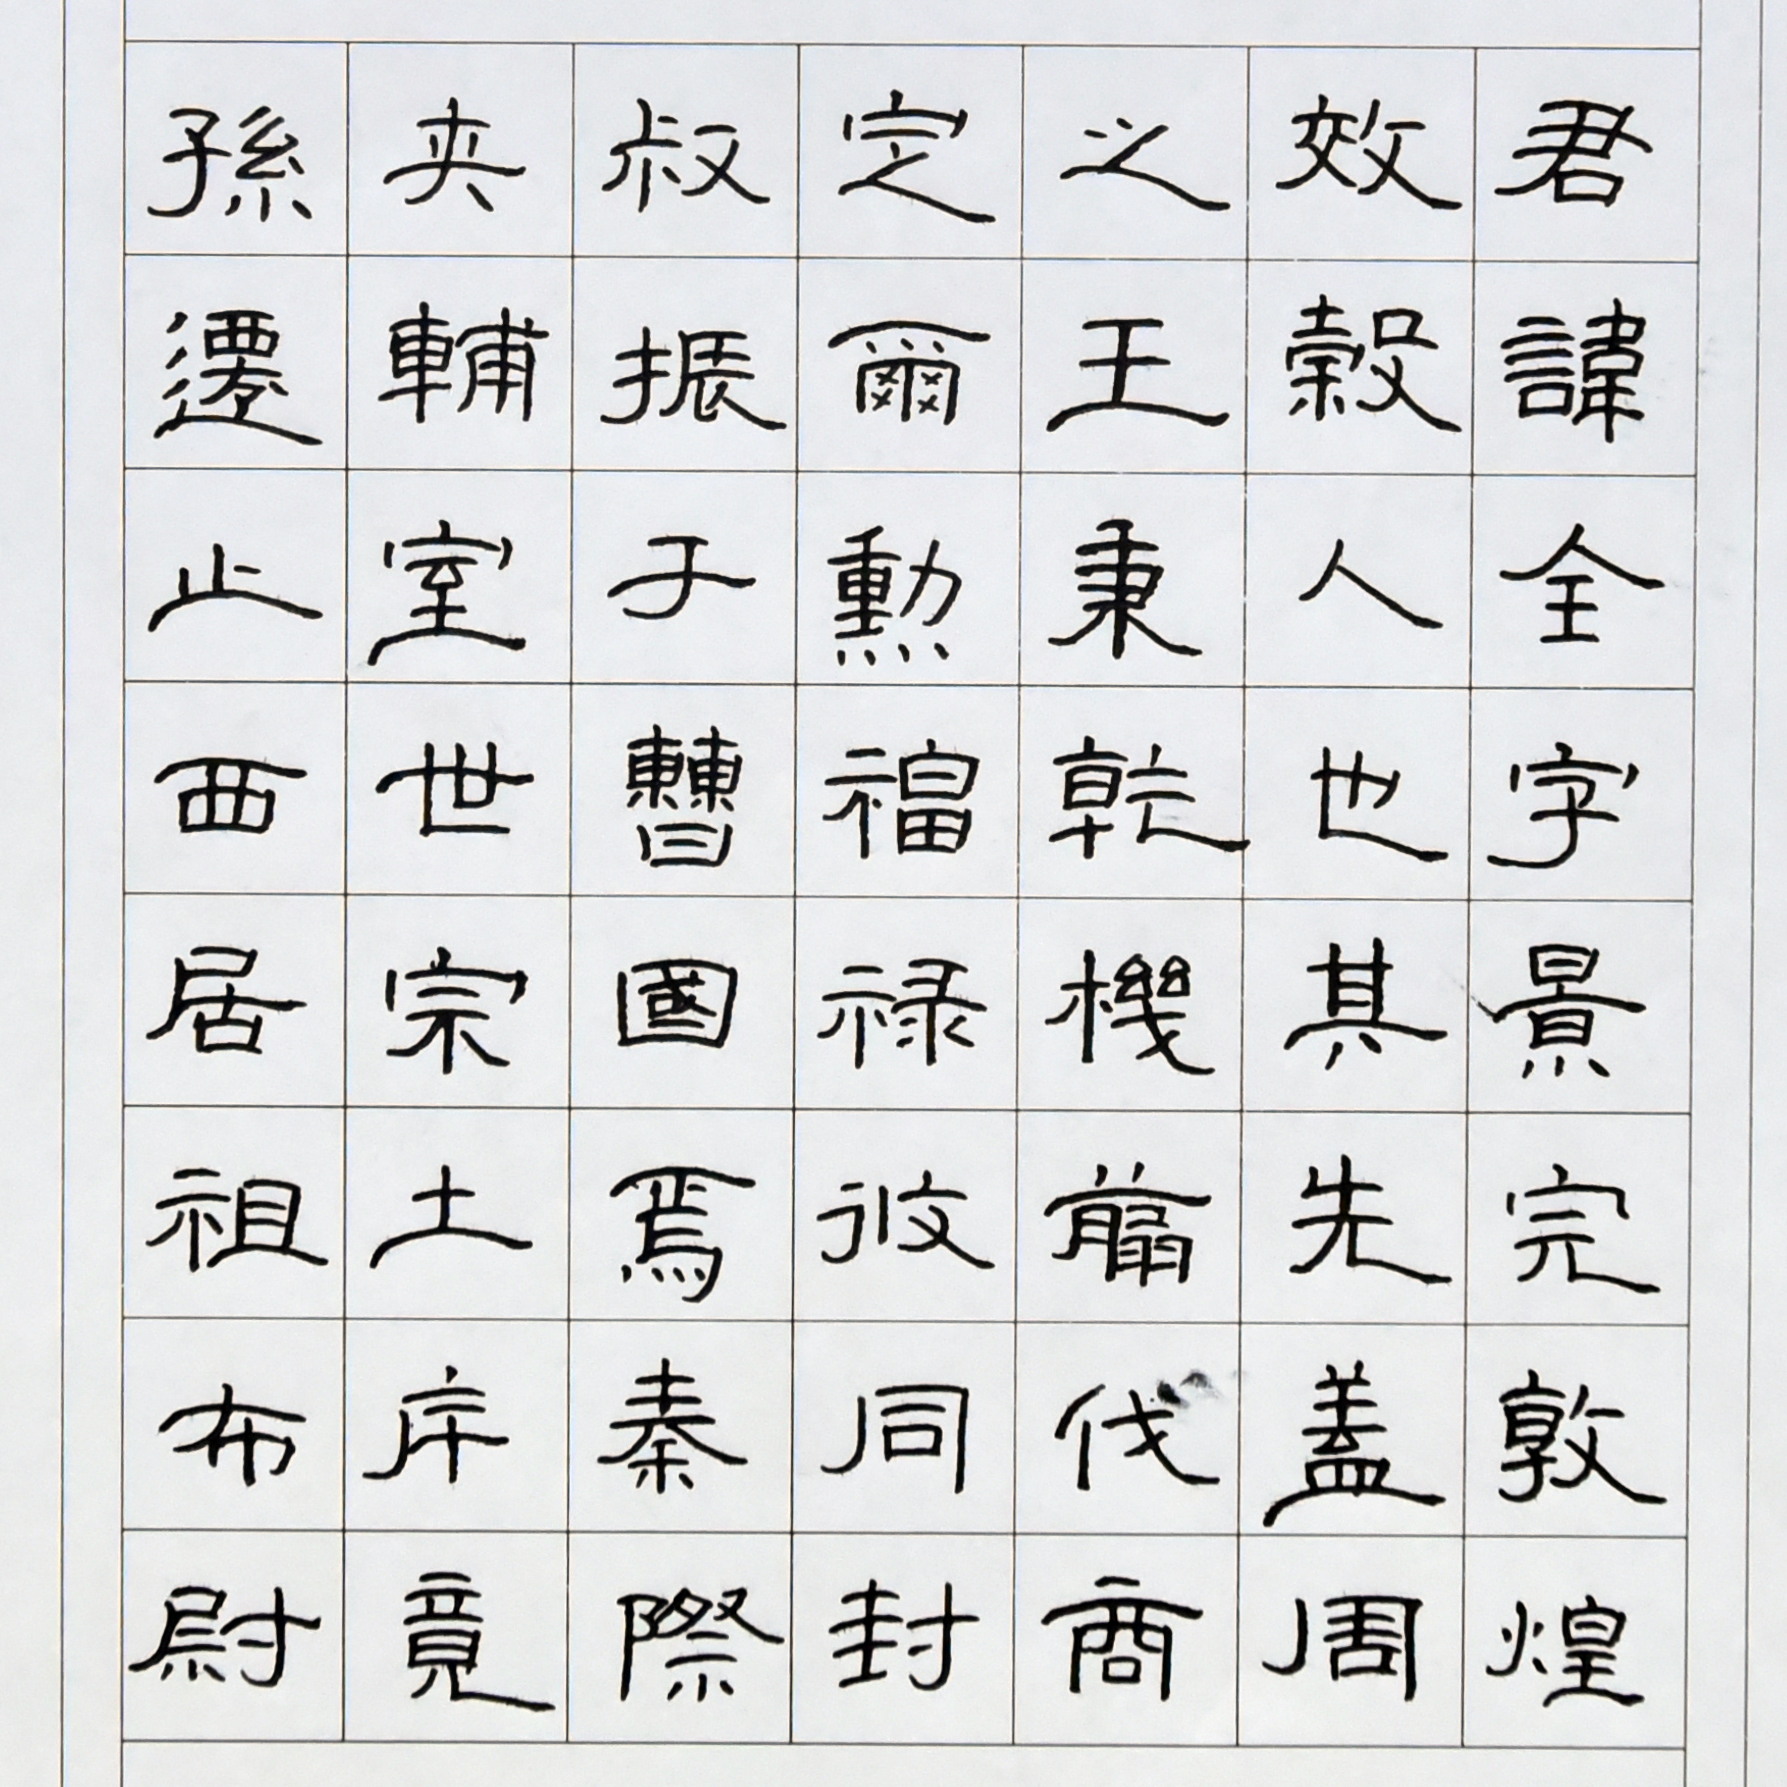 君諱全字景完敦煌
效穀人也其先蓋周
之王秉乾機翦伐商
定爾勲福祿攸同封
叔振于曹國焉秦際
夾輔室世宗土斥竟
孫遷止西居祖布尉